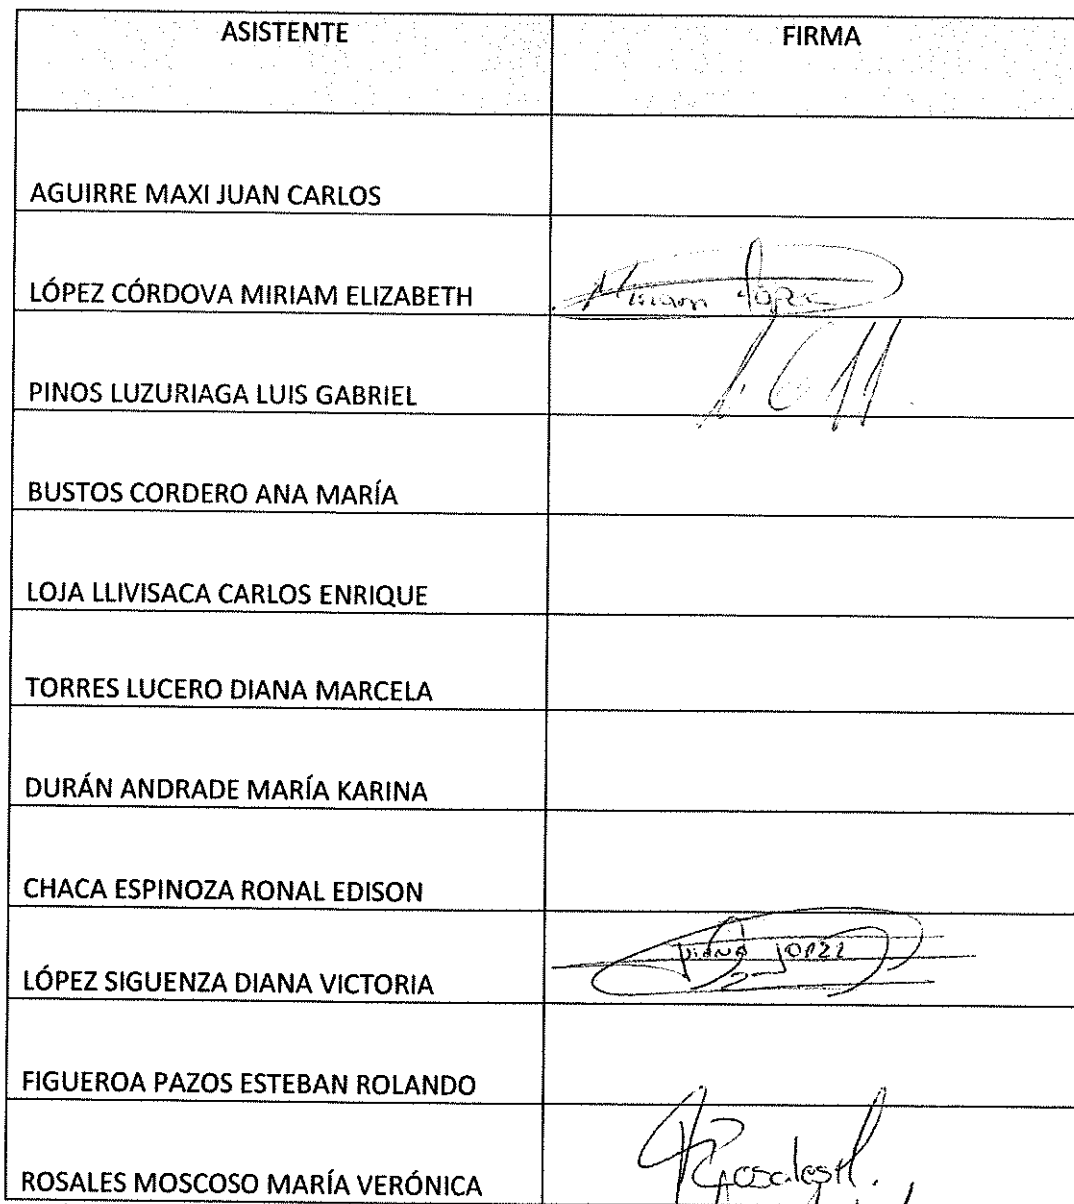 ASISTENTE FIRMA
AGUIRRE MAXI JUAN CARLOS
LÓPEZ CÓRDOVA MIRIAM ELIZABETH Miriam López
PINOS LUZURIAGA LUIS GABRIEL
BUSTOS CORDERO ANA MARÍA
LOJA LLIVISACA CARLOS ENRIQUE
TORRES LUCERO DIANA MARCELA
DURÁN ANDRADE MARÍA KARINA
CHACA ESPINOZA RONAL EDISON
LÓPEZ SIGUENZA DIANA VICTORIA Diana López
FIGUEROA PAZOS ESTEBAN ROLANDO
ROSALES MOSCOSO MARÍA VERÓNICA